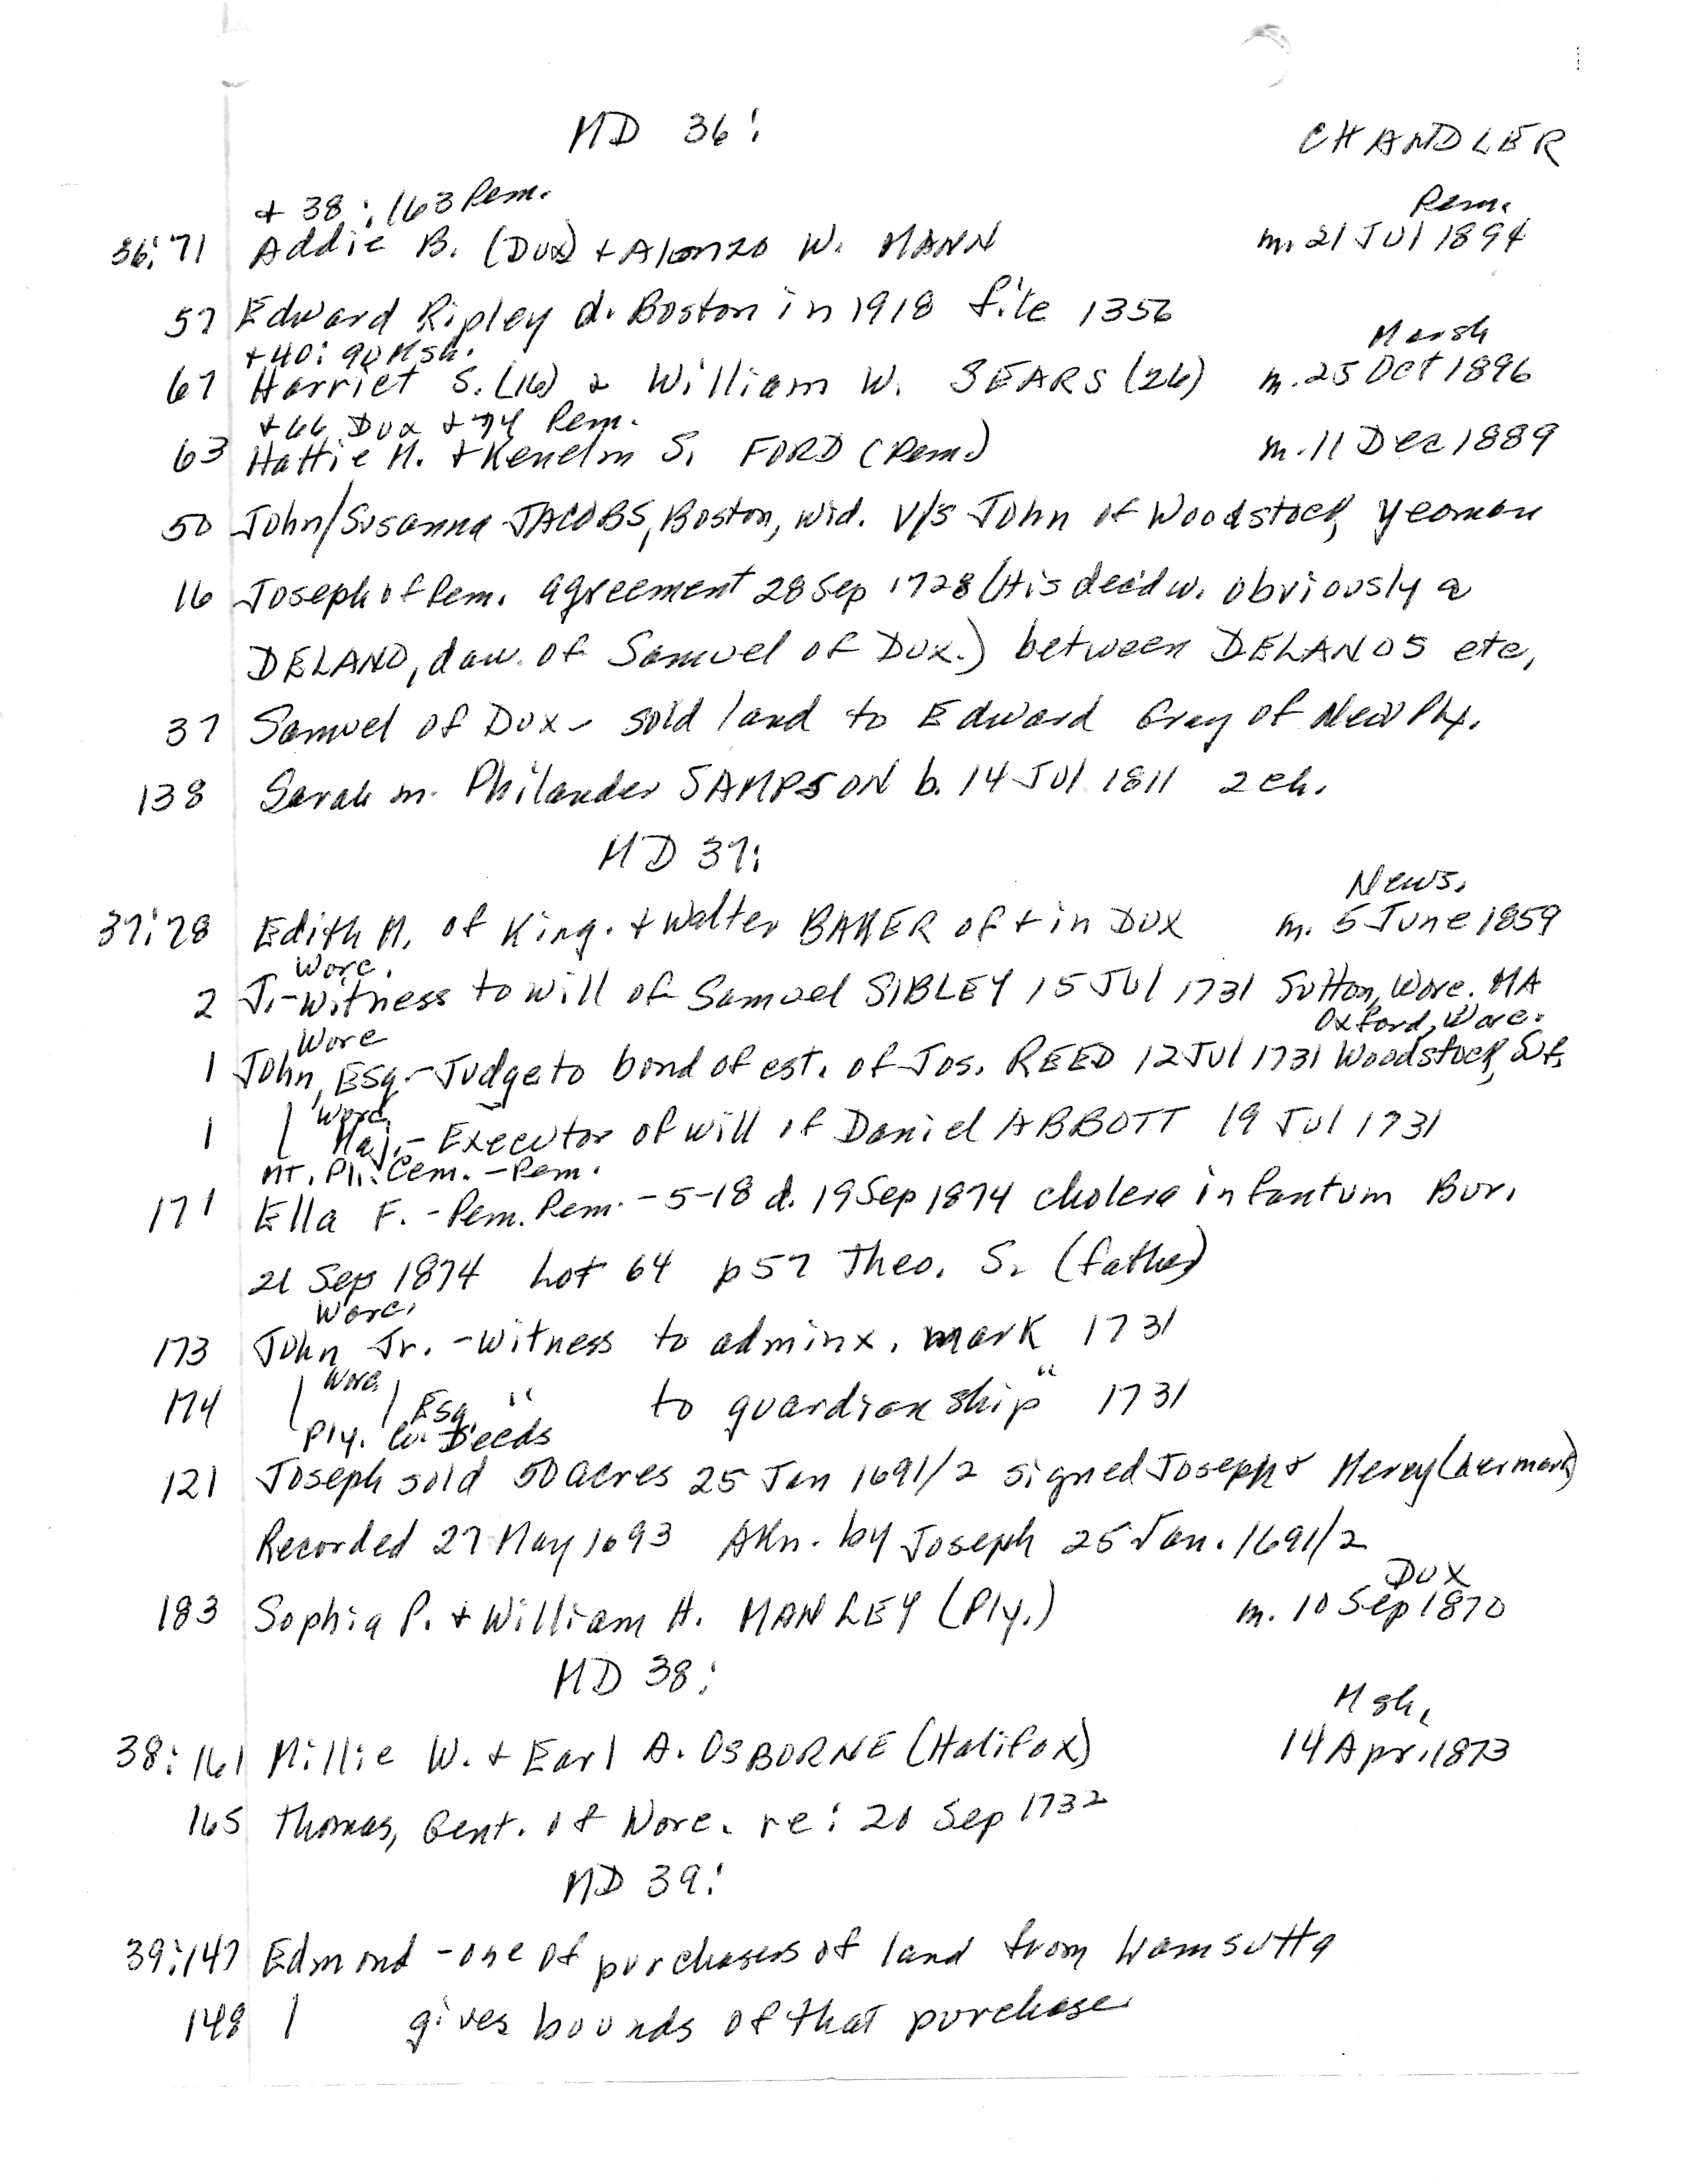 MD 36:
CHANDLER
+ 38:163 Pem.
Pem.
36:71 Addie B. (Dux) + Alonzo W. MANN m. 21 Jul 1894
57 Edward Ripley d. Boston in 1918 file 1356
+40:90 Msh.
Marsh
67 Harriet S. (16) & William W. SEARS (26) m. 25 Oct 1896
+66 Dux + 74 Pem.
63 Hattie M. + Kenelm S. FORD (Pem.) m. 11 Dec 1889
50 John/Susanna JACOBS, Boston, wid. v/s John of Woodstock, yeoman
16 Joseph of Pem. agreement 28 Sep 1728 (His dec'd w. obviously a
DELANO, dau. of Samuel of Dux.) between DELANOS etc.
37 Samuel of Dux - sold land to Edward Gray of New Ply.
138 Sarah m. Philander SAMPSON b. 14 Jul 1811 2 ch.
MD 37:
News.
37:78 Edith M. of King. + Walter BAKER of + in DUX m. 5 June 1859
Worc.
2 J.-witness to will of Samuel SIBLEY 15 Jul 1731 Sutton, Worc. MA
Worc
Oxford, Worc.
1 John, Esq.-Judge to bond of est. of Jos. REED 12 Jul 1731 Woodstock, Suf.
Worc
1 | Maj.- Executor of will of Daniel ABBOTT 19 Jul 1731
MT. Pl. Cem. - Pem.
171 Ella F. - Pem. Pem. - 5-18 d. 19 Sep 1874 cholera infantum Bur.
21 Sep 1874 Lot 64 p57 Theo. S. (father)
Worc.
173 John Jr. - witness to adminx. mark 1731
Worc.
174 | | Esq. " to guardianship " 1731
Ply. Co. Deeds
121 Joseph sold 50 acres 25 Jan 1691/2 signed Joseph & Mercy (her mark)
Recorded 27 May 1693 Akn. by Joseph 25 Jan. 1691/2
DUX
183 Sophia P. + William H. MANLEY (Ply.) m. 10 Sep 1870
MD 38:
Msh.
38:161 Millie W. + Earl A. OSBORNE (Halifax) 14 Apr. 1873
165 Thomas, Gent. of Worc. re: 20 Sep 1732
MD 39:
39:147 Edmond - one of purchasers of land from Wamsutta
148 | gives bounds of that purchase